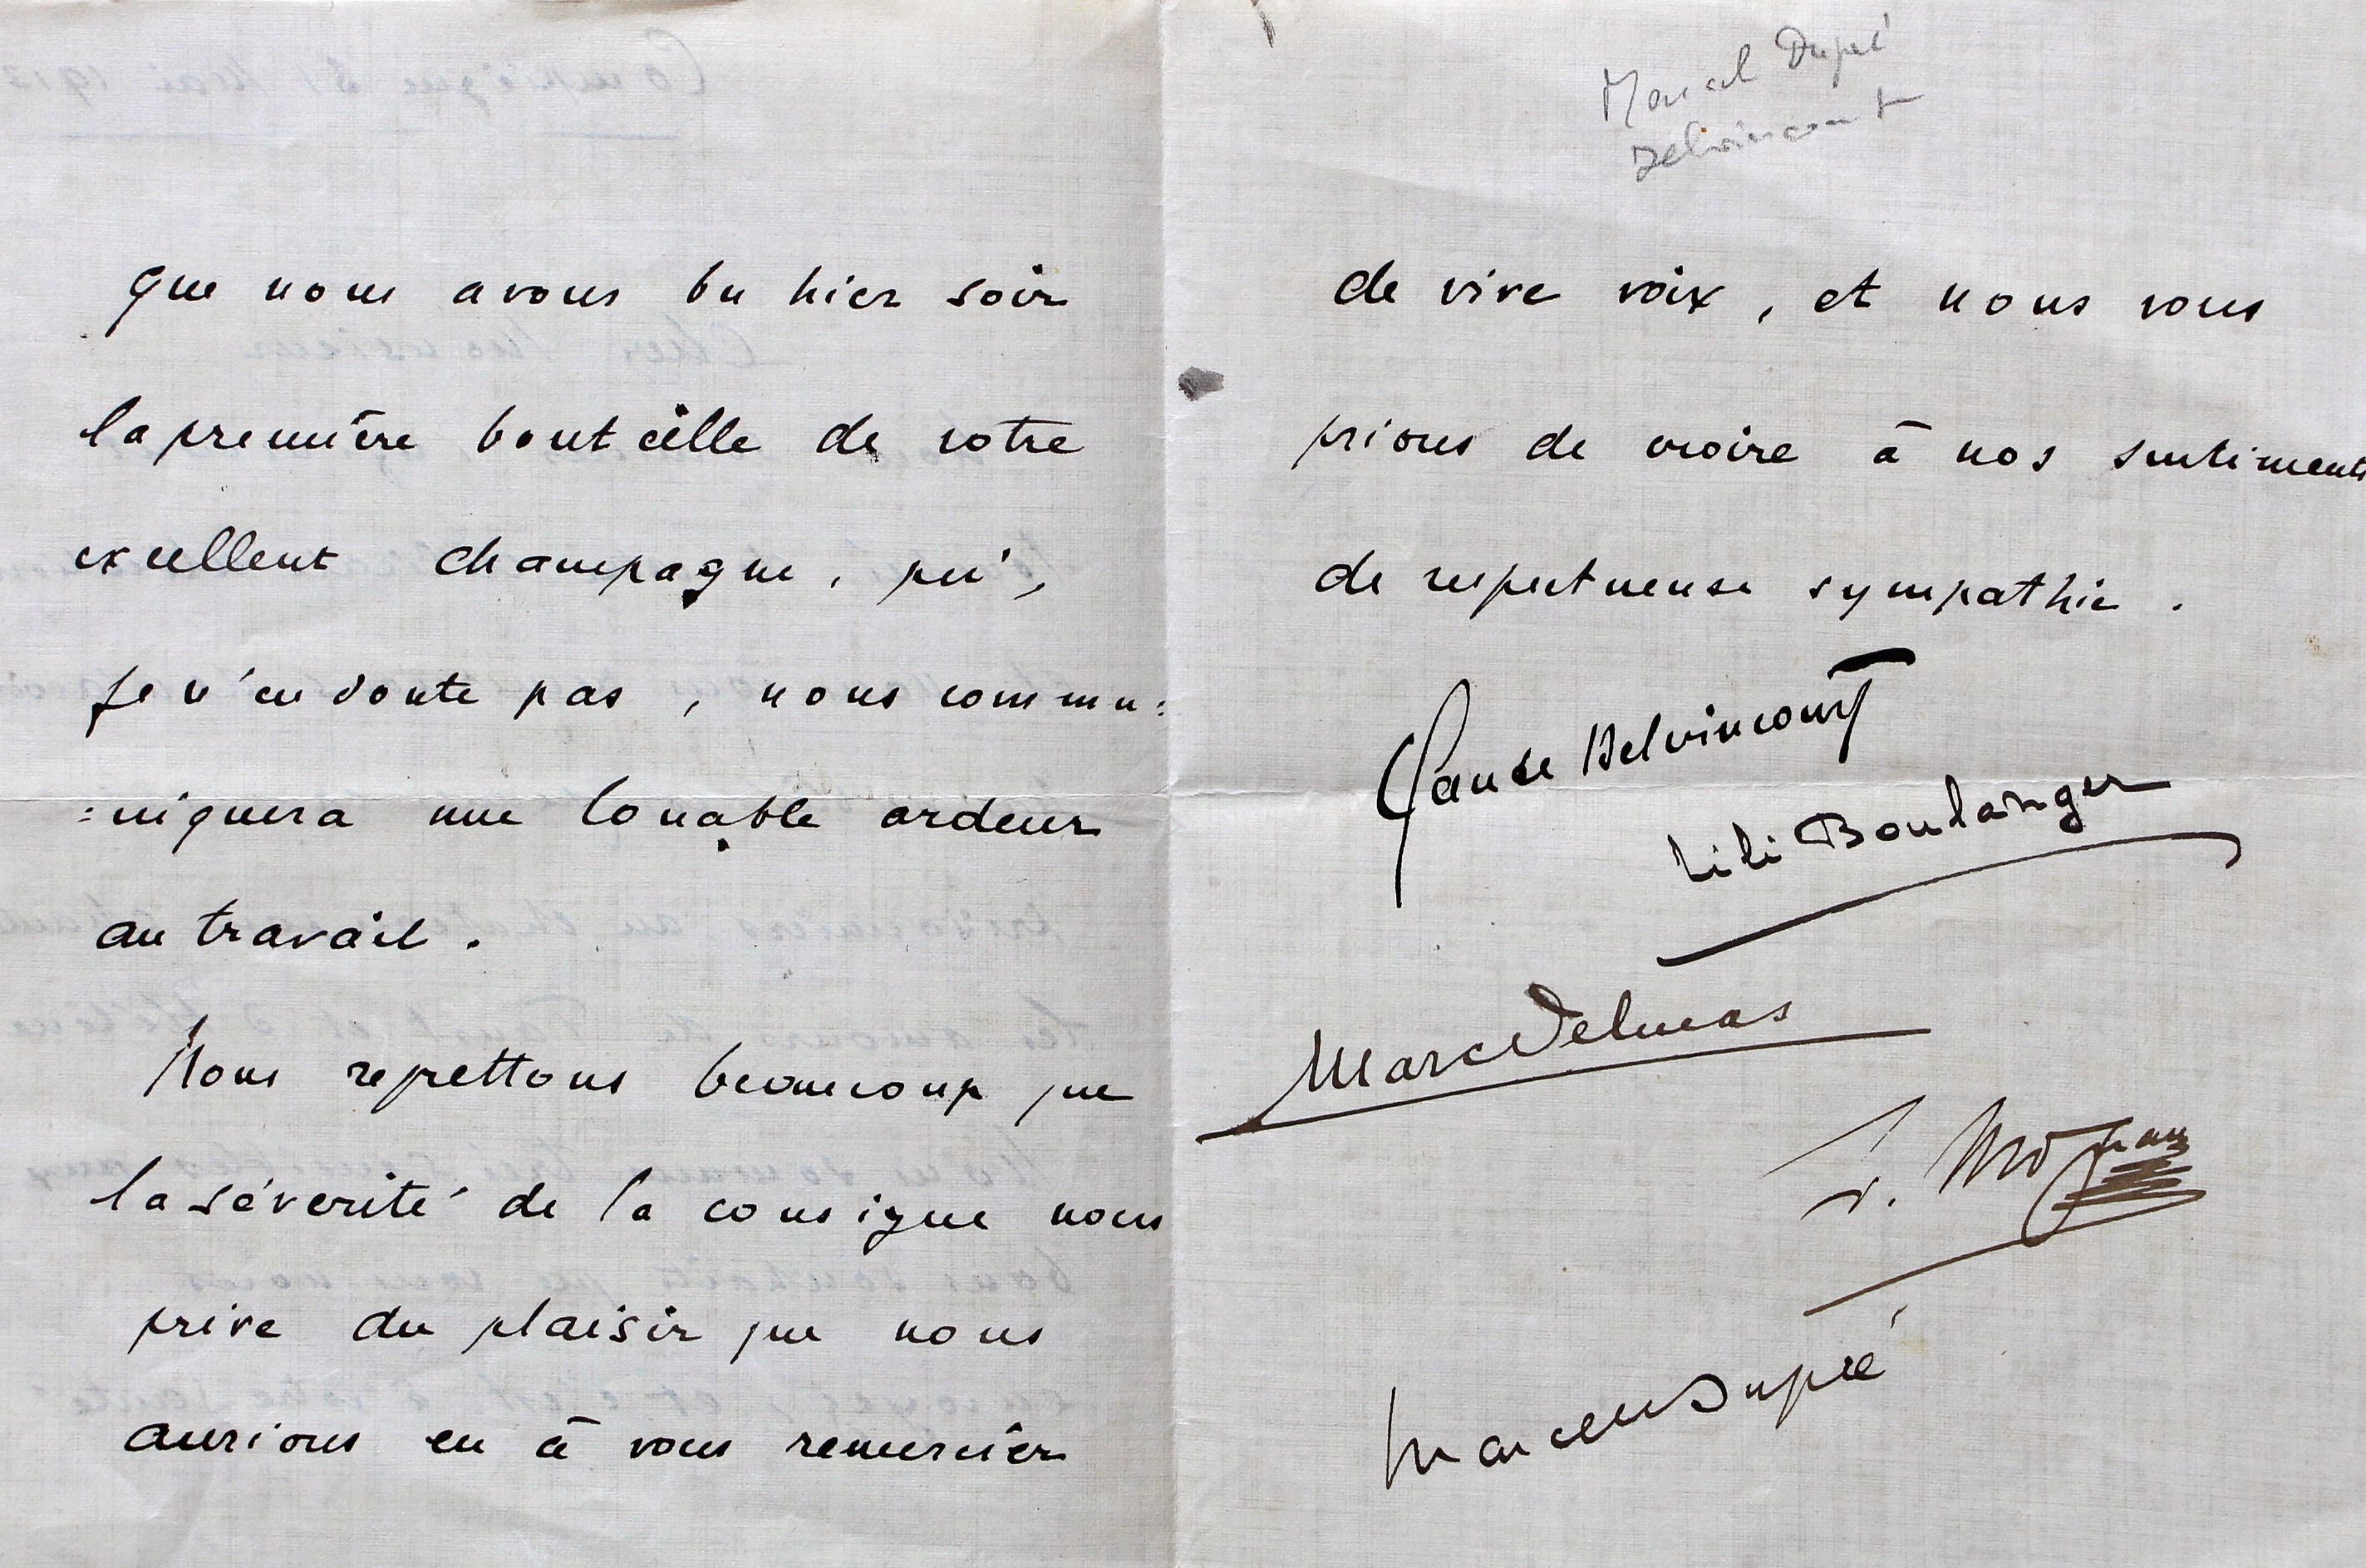 que nous avons bu hier soir
la première bouteille de votre
excellent champagne, qui,
je n'en doute pas, nous commu=
=niquera une louable ardeur
au travail.
Nous regrettons beaucoup que
la sévérité de la consigne nous
prive du plaisir que nous
aurions eu à vous remercier
Marcel Dupré
Delvincourt
de vive voix, et nous vous
prions de croire à nos sentiments
de respectueuse sympathie.
Claude Delvincourt
Lili Boulanger
Marc Delmas
Marcel Dupré